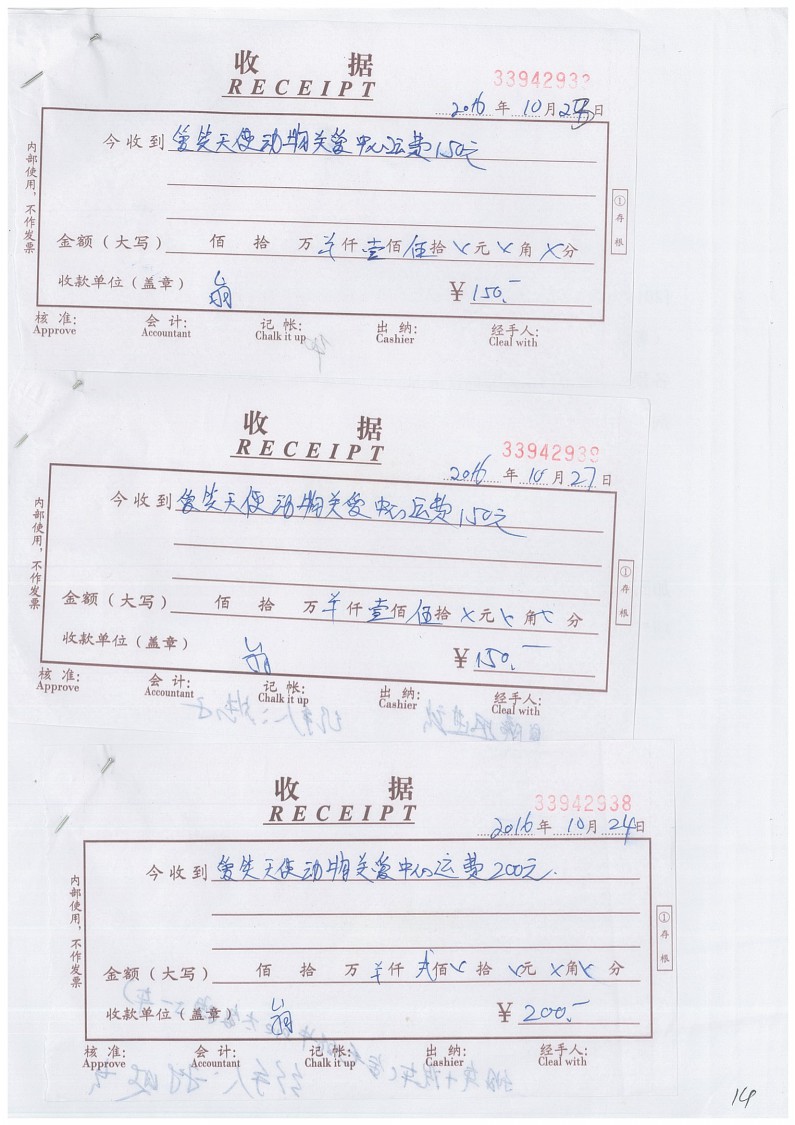 收 据
RECEIPT
3394293
2016 年 10 月 2 日
今收到 爱笑天使动物关爱中心运费150元
金额（大写） 佰 拾 万 羊 仟 壹 佰 伍 拾 x 元 x 角 x 分
收款单位（盖章） ¥ 150.-
核 准: 会 计: 记 帐: 出 纳: 经手人:
Approve Accountant Chalk it up Cashier Cleal with
内部使用，不作发票
①存根
收 据
RECEIPT
33942939
2016 年 10 月 27 日
今收到 爱笑天使动物关爱中心运费150元
金额（大写） 佰 拾 万 羊 仟 壹 佰 伍 拾 x 元 x 角 x 分
收款单位（盖章） ¥ 150.-
核 准: 会 计: 记 帐: 出 纳: 经手人:
Approve Accountant Chalk it up Cashier Cleal with
内部使用，不作发票
①存根
收 据
RECEIPT
33942938
2016 年 10 月 24 日
今收到 爱笑天使动物关爱中心运费200元.
金额（大写） 佰 拾 万 羊 仟 弍 佰 x 拾 x 元 x 角 x 分
收款单位（盖章） ¥ 200.-
核 准: 会 计: 记 帐: 出 纳: 经手人:
Approve Accountant Chalk it up Cashier Cleal with
内部使用，不作发票
①存根
14